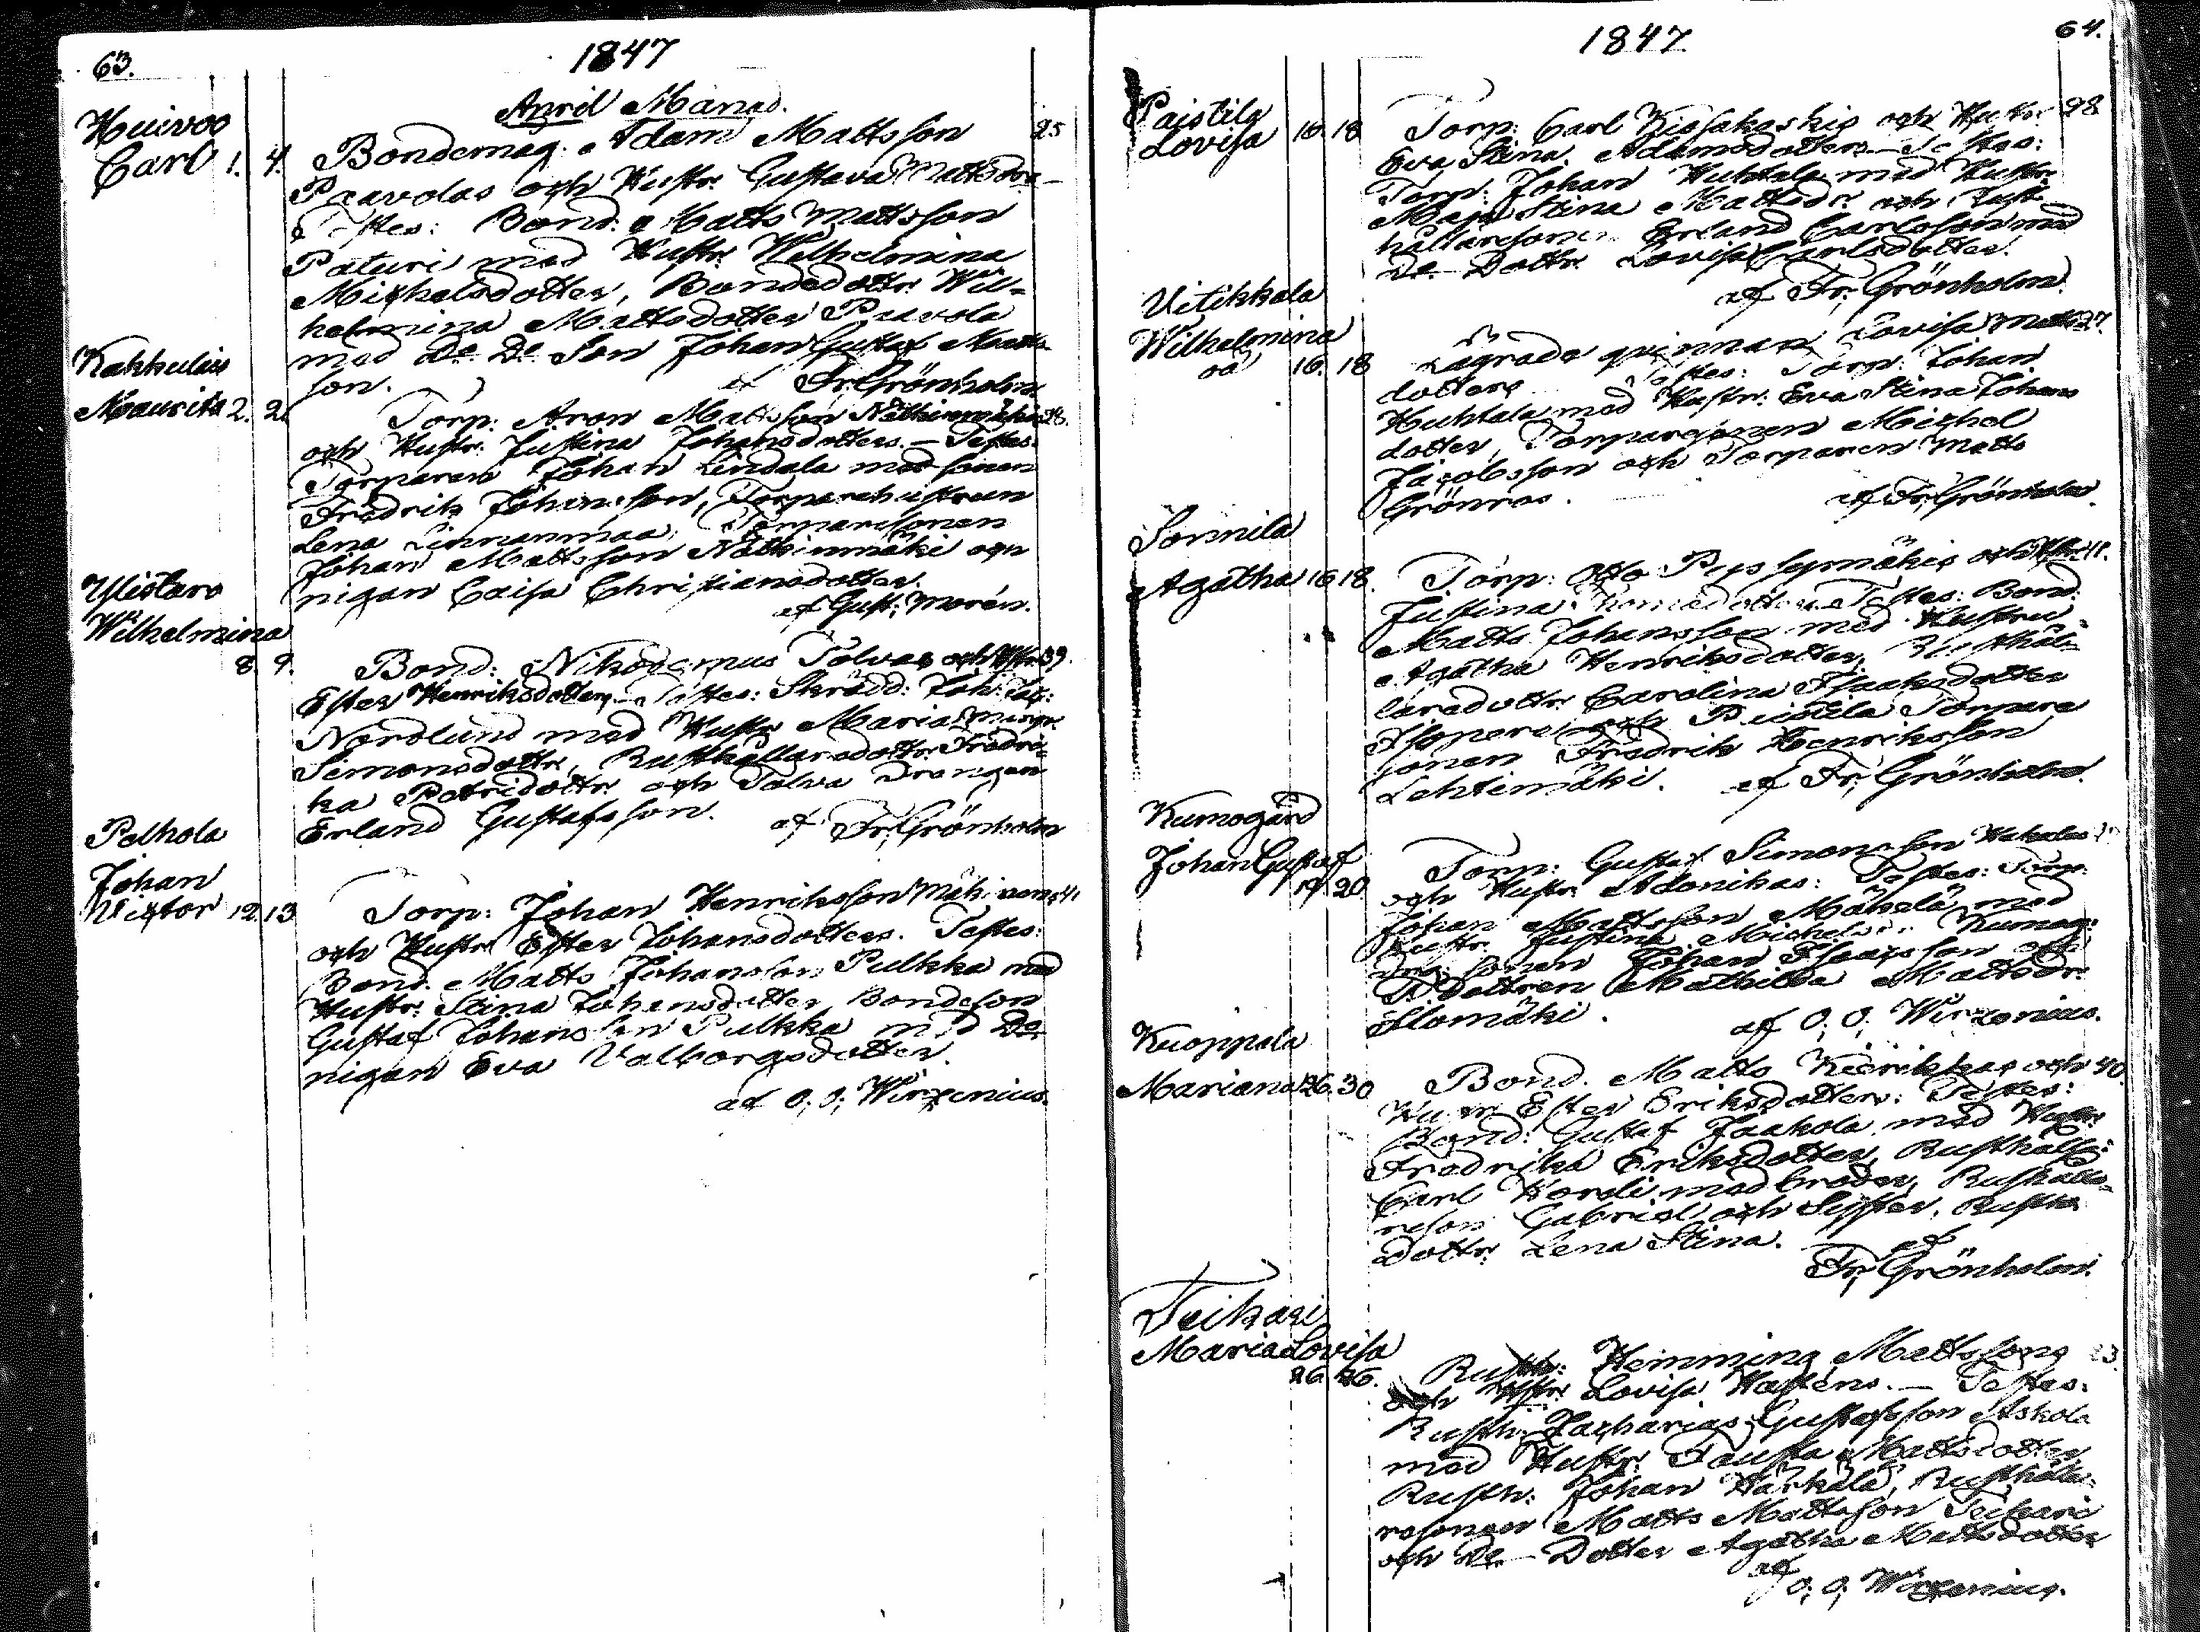 63.
1847
April Månad.
Huivoo
Carl 1. 4. Bondemag. Adam Mattsson 25
Paavolas och Hustr. Gustava Mattsdrs
Testes: Bond. Matts Mattsson
Paturi med Hustr. Wilhelmina
Michelsdotter, Bondedottr. Wil-
helmina Mattsdotter Paavola
med De De Son Johan Gustaf Matts-
son. af Fr. Grönholm
Kakkulais
Mauritz 2. 2. Torp. Aron Mattsson 28.
och Hustr. Justina Johansdotters. — Testes:
Torparen Johan Lindala med sonen
Fredrik Johansson, Torparehustrun
Lena Linnanmaa, Torparesonen
Johan Mattsson och
pigan Caisa Christiansdotter.
af Gust. Morén.
Ylistaro
Wilhelmina
8. 9. Bond: Nikodemus Tolvas och Hstr. 39.
Ester Henriksdotters — Testes: Skrädd: Joh:
Nordlund med Hustr. Maria
Simonsdottr, Rusthållaredottr. Fredri-
ka Petridottr och Tolva Drängen
Erland Gustafsson. af Fr. Grönholm
Pelhola
Johan
Victor 12. 13. Torp: Johan Henriksson 41.
och Hustr. Ester Johansdotters. Testes:
Bond. Matts Johansson Pulkka med
Hustr. Stina Johansdotter, Bondeson
Gustaf Johansson Pulkka med
pigan Eva Valborgsdotter.
af O. O. Wirzenius.
1847
64.
Paistila
Lovisa 16. 18. Torp: Carl och Hustr. 28
Eva Stina Adamsdotters — Testes:
Torp: Johan Huhtala med Hustr.
Maja Stina Mattsdr. och Rust-
hållaresonen Erland Carlsson med
De Dottr. Lovisa Carlsdotter.
af Fr. Grönholm.
Uitikkala
Wilhelmina
oä 16. 18 Lägrade qvinnan Lovisa Matts- 27.
dotters Testes: Torp: Johan
Huhtala med Hustr: Eva Stina Johans
dotter, Torparesonen Michel
Jacobsson och Torparen Matts
Grönros. af Fr. Grönholm.
Sonnila
Agatha 16. 18. Torp: Otto och Hstr. 41.
Justina Thomasdotters Testes: Bond.
Matts Johansson med Hustru
Agatha Henriksdotter, Rusthål-
laredottr. Carolina Isaaksdotter
och Paistila Torpare
sonen Fredrik Henriksson
Lehtimäki. af Fr. Grönholm.
Kumogård
Johan Gustaf
19. 20. Torp: Gustaf Simonsson
och Hustr. Adonikas: Testes: Torp:
Johan Mattsson Mäkelä med
Hustr. Justina Kumog:
sonen Johan Isacsson och
Dottren Mathilda Mattsdr.
Slomäki. af O. O. Wirzenius.
Kuoppala
Mariana 26. 30 Bond. Matts och 40.
Hustr. Ester Eriksdotters: Testes:
Bond: Gustaf Jaakola med Hustr.
Fredrika Eriksdotter, Rusthåll:
Carl Hordi med broder, Rusthålla-
reson Gabriel och Syster, Rusth.
dottr. Lena Stina. af
Fr. Grönholm.
Teikari
Maria Lovisa
26. 26. Rusth: Hemming Mattssons 23.
och Hstr. Lovisa Hastens. — Testes:
Rusth: Zacharias Gustafsson Askola
med Hustr. Fausta Mattsdotter
Rusth: Johan Härkälä, Rusthålla-
resonen Matts Mattsson Teikari
och De — Dotter Agatha Mattsdotter
af
O. O. Wirzenius.